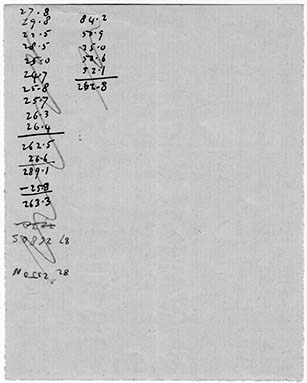 27.8
29.8
22.5
28.5
25.0
24.7
25.8
25.7
26.3
26.4
262.5
26.6
289.1
-25.8
263.3
84.2
50.9
25.0
50.6
52.1
262.8